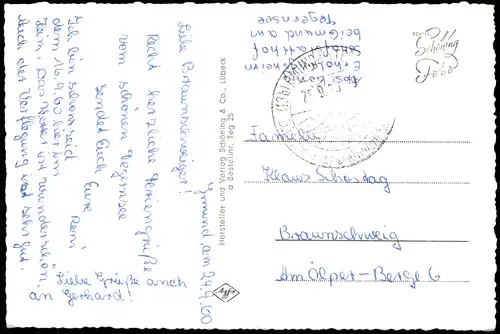 Gmund, am 24.9.60
Liebe Braunschweiger!
Recht herzliche Feriengrüße
vom schönen Tegernsee
sendet Euch Eure Remi
Ich bin schon seid
dem 16.9.60 hier im
Heim. Das Wetter ist wunderschön,
auch die Verpflegung ist sehr gut.
Liebe Grüße auch
an Gerhard!
Hersteller und Verlag Schöning & Co., Lübeck
Bestellnr. Teg 25
Erholungsheim
bei Gmund am
Tegernsee
ECHTE
Schöning
Foto
Familie
Klaus Schostag
Braunschweig
Am Ölper-Berge 6